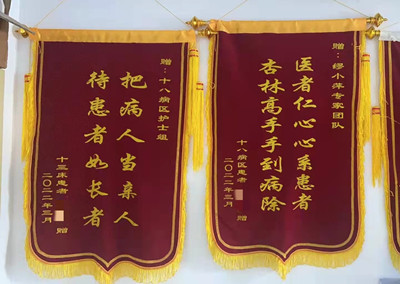 赠：十八病区护士组
把病人当亲人
待患者如长者
十三床患者 赠
二〇二二年三月
赠：缪小萍专家团队
医者仁心心系患者
杏林高手手到病除
十八病区患者 赠
二〇二二年三月